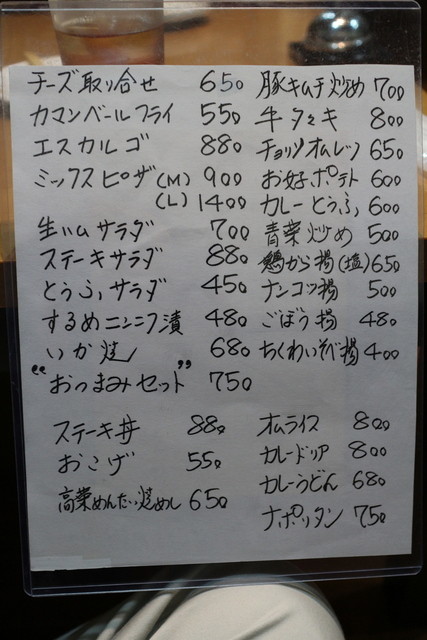 チーズ取り合せ 650
カマンベールフライ 550
エスカルゴ 880
ミックスピザ (M) 900
(L) 1400
生ハムサラダ 700
ステーキサラダ 880
とうふサラダ 450
するめニンニク漬 480
いか焼 680
"おつまみセット" 750
ステーキ丼 880
おこげ 550
高菜めんたい焼めし 650
豚キムチ炒め 700
牛タタキ 800
チョリソオムレツ 650
お好ポテト 600
カレーとうふ 600
青菜炒め 500
鶏から揚(塩) 650
ナンコツ揚 500
ごぼう揚 480
ちくわいそべ揚 400
オムライス 800
カレードリア 800
カレーうどん 680
ナポリタン 750